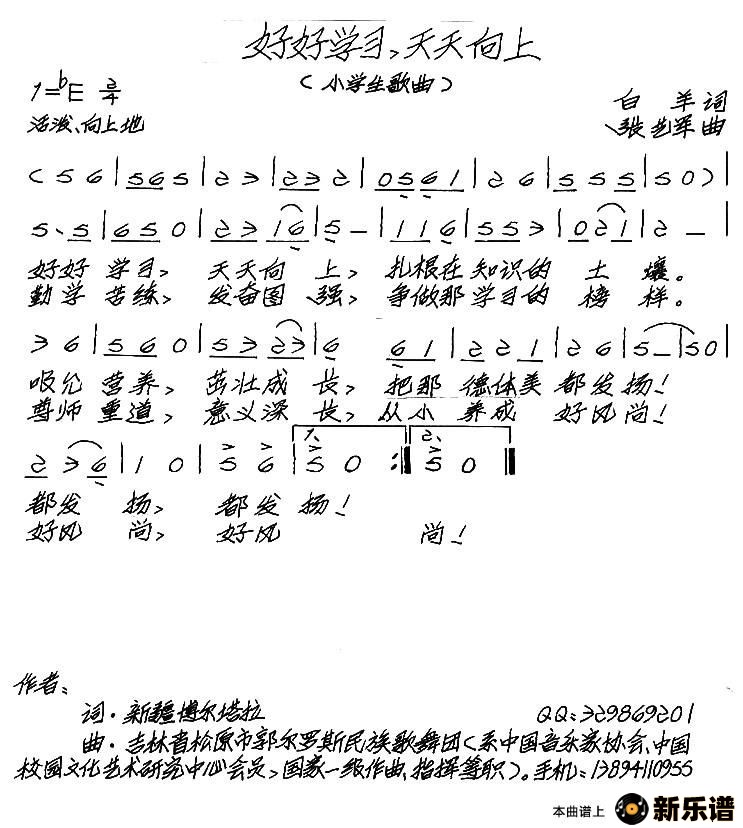 好好学习,天天向上
(小学生歌曲)
1=bE 2/4
白 羊 词
活泼、向上地
张艺军 曲
(5 6 | 5 6 5 | 2 3 | 2 3 2 | 0 5 6 1 | 2 6 | 5 5 5 | 5 0) |
5、5 | 6 5 0 | 2 3 1 6 | 5 – | 1 1 6 | 5 5 3 | 0 2 1 | 2 – |
好好 学习, 天天向 上, 扎根在 知识的 土 壤。
勤学 苦练, 发奋图 强, 争做那 学习的 榜 样。
3 6 | 5 6 0 | 5 3 2 3 | 6 6 1 | 2 2 1 | 2 6 | 5 – | 5 0 |
吸允 营养, 茁壮成 长, 把那 德体美 都发 扬!
尊师 重道, 意义深 长, 从小 养成 好风 尚!
1、 2、
2 3 6 | 1 0 | 5 6 | 5 0 :| 5 0 ||
都发 扬, 都发 扬!
好风 尚, 好风 尚!
作者:
词·新疆博尔塔拉 QQ:329869201
曲·吉林省松原市郭尔罗斯民族歌舞团(系中国音乐家协会、中国
校园文化艺术研究中心会员,国家一级作曲、指挥兼职)。手机:13894110955
本曲谱上 新乐谱